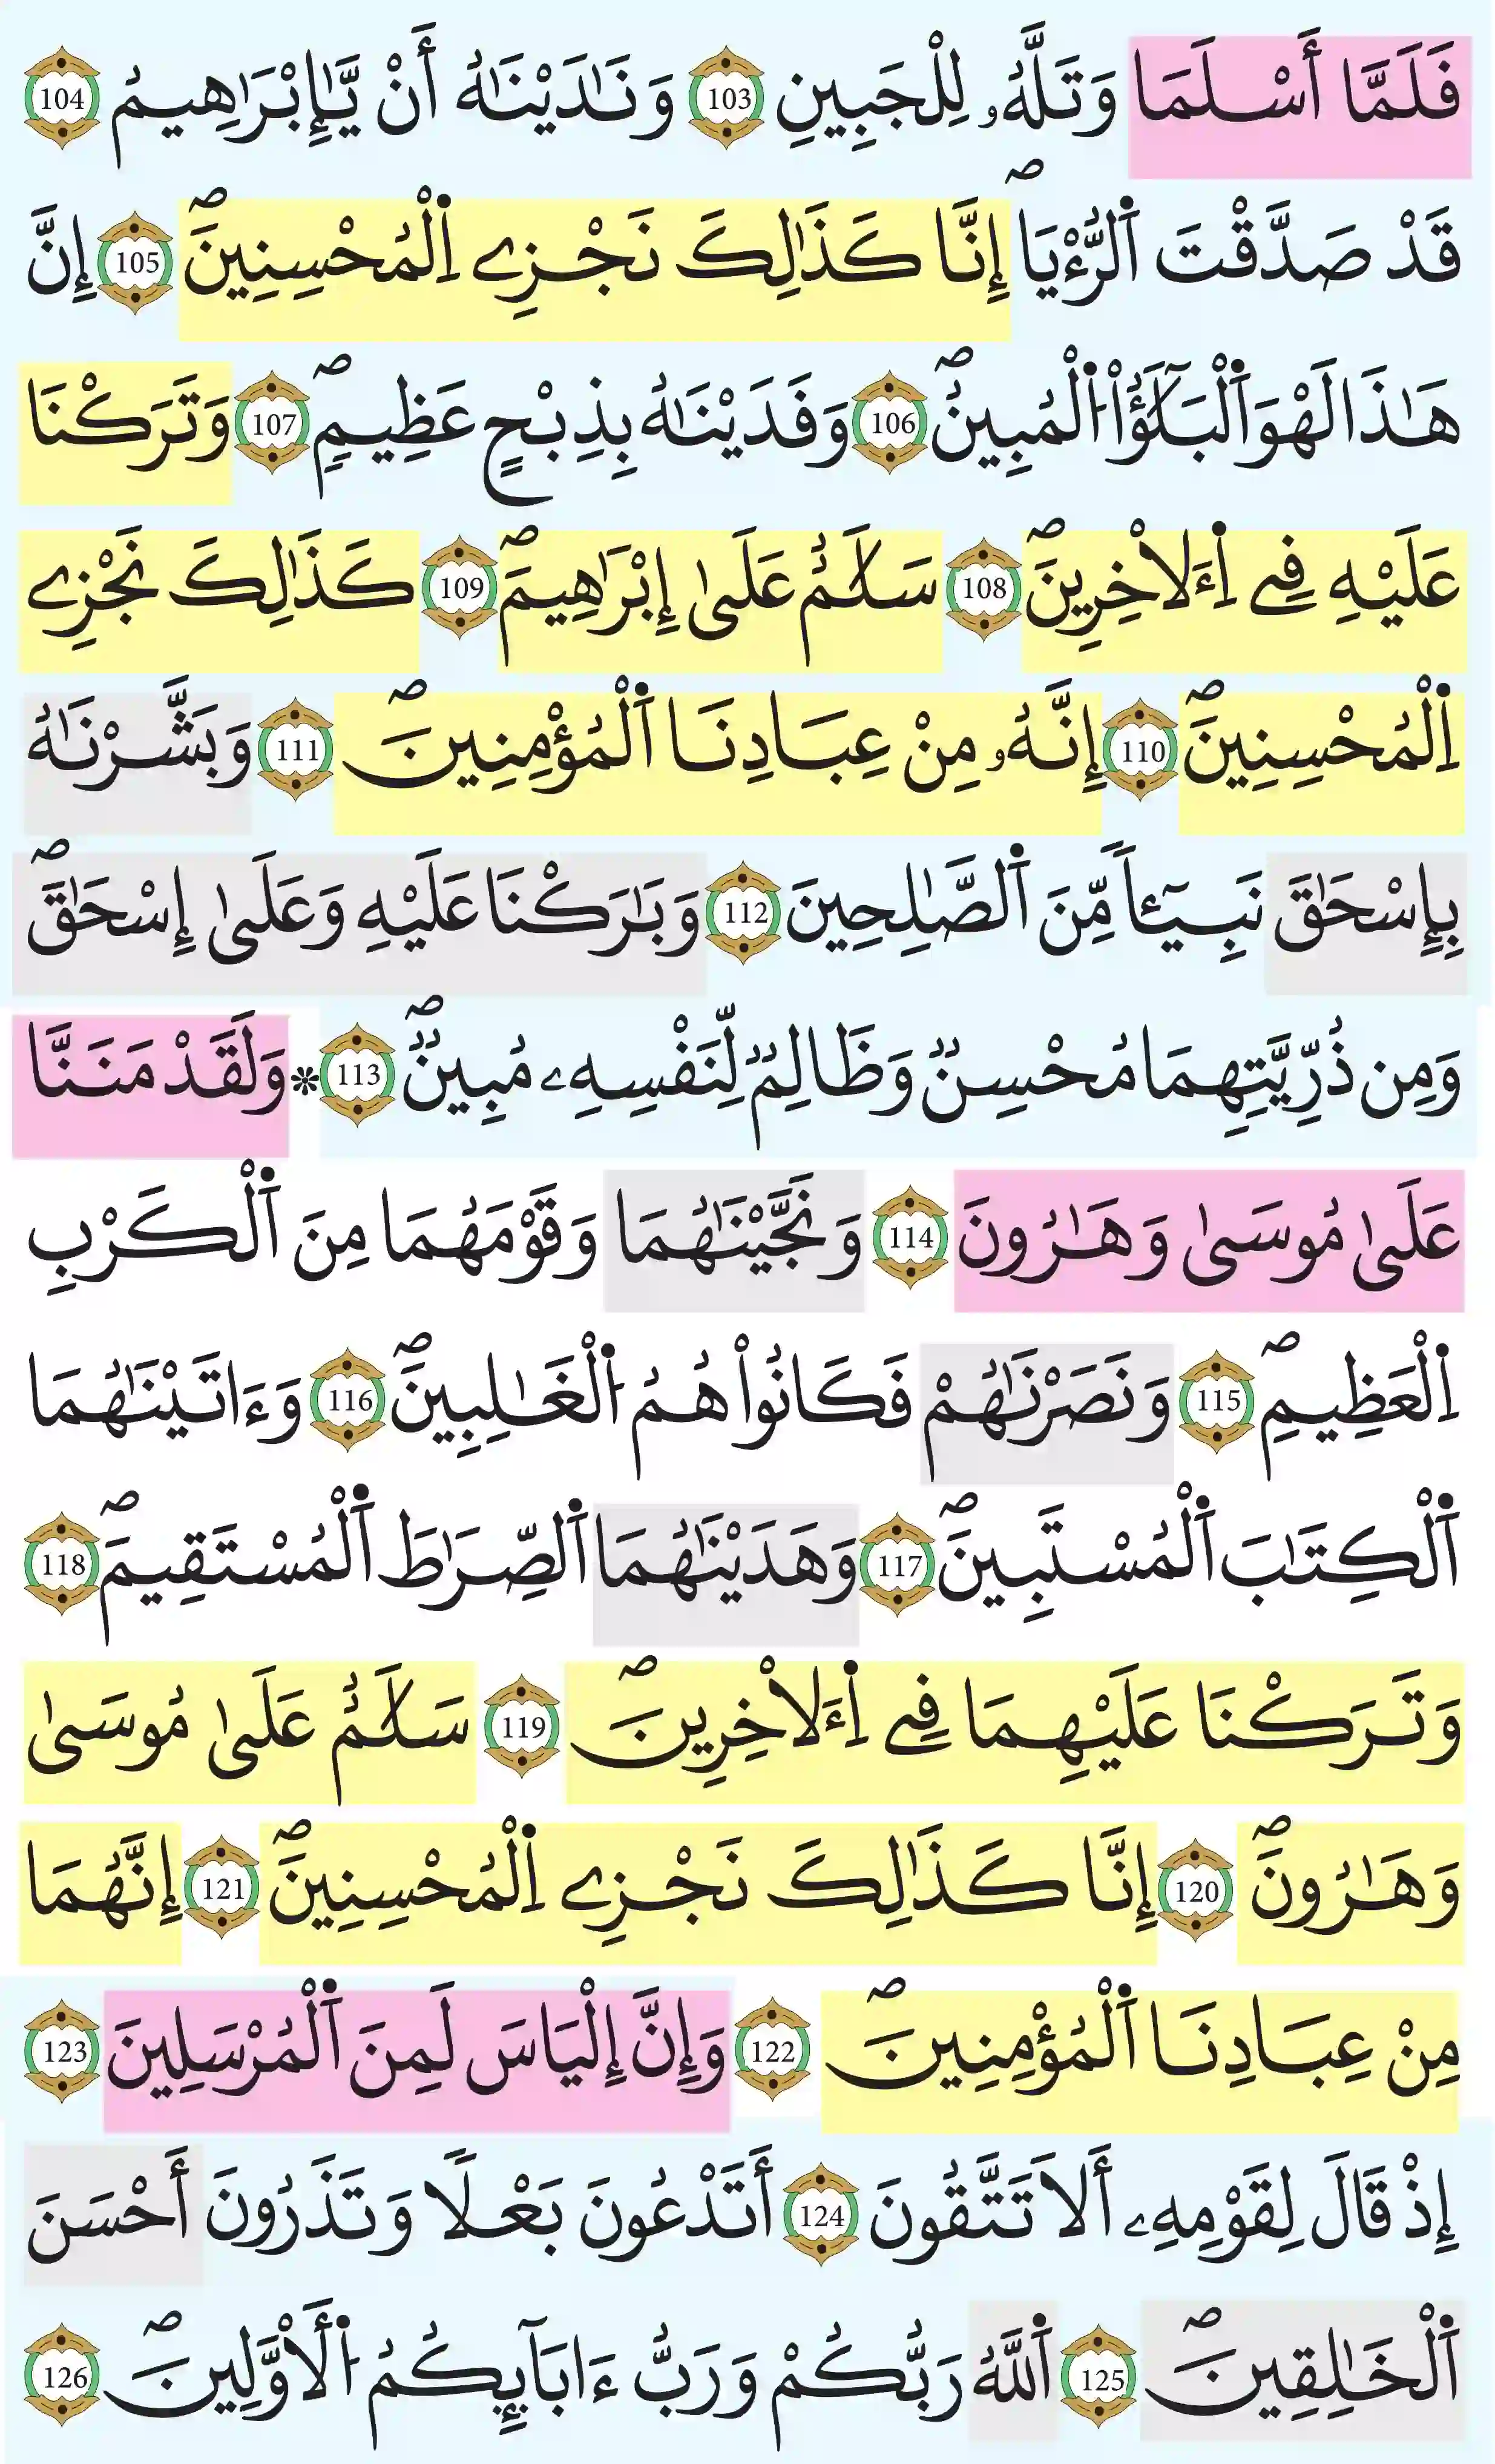 فَلَمَّا أَسْلَمَا وَتَلَّهُۥ لِلْجَبِينِ 103 وَنَٰدَيْنَٰهُ أَنْ يَّٰإِبْرَٰهِيمُ 104
قَدْ صَدَّقْتَ اَ۬لرُّءْي۪اۖ إِنَّا كَذَٰلِكَ نَجْزِے اِ۬لْمُحْسِنِينَۖ 105 إِنَّ
هَٰذَا لَهْوَ اَ۬لْبَلَٰٓؤُاْ اُ۬لْمُبِينُۖ 106 وَفَدَيْنَٰهُ بِذِبْحٍ عَظِيمٖۖ 107 وَتَرَكْنَا
عَلَيْهِ فِے اِ۬ءَلَاخِرِينَۖ 108 سَلَٰمٌ عَلَىٰ إِبْرَٰهِيمَۖ 109 كَذَٰلِكَ نَجْزِے
اِ۬لْمُحْسِنِينَۖ 110 إِنَّهُۥ مِنْ عِبَادِنَا اَ۬لْمُؤْمِنِينَۖ 111 وَبَشَّرْنَٰهُ
بِإِسْحَٰقَ نَبِيٓـٔاٗ مِّنَ اَ۬لصَّٰلِحِينَ 112 وَبَٰرَكْنَا عَلَيْهِ وَعَلَىٰ إِسْحَٰقَۖ
وَمِن ذُرِّيَّتِهِمَا مُحْسِنٞ وَظَالِمٞ لِّنَفْسِهِۦ مُبِينٞۖ 113 ۞ وَلَقَدْ مَنَنَّا
عَلَىٰ مُوسَىٰ وَهَٰرُونَ 114 وَنَجَّيْنَٰهُمَا وَقَوْمَهُمَا مِنَ اَ۬لْكَرْبِ
اِ۬لْعَظِيمِۖ 115 وَنَصَرْنَٰهُمْ فَكَانُواْ هُمُ اُ۬لْغَٰلِبِينَۖ 116 وَءَاتَيْنَٰهُمَا
اَ۬لْكِتَٰبَ اَ۬لْمُسْتَبِينَۖ 117 وَهَدَيْنَٰهُمَا اَ۬لصِّرَٰطَ اَ۬لْمُسْتَقِيمَۖ 118
وَتَرَكْنَا عَلَيْهِمَا فِے اِ۬ءَلَاخِرِينَۖ 119 سَلَٰمٌ عَلَىٰ مُوسَىٰ
وَهَٰرُونَۖ 120 إِنَّا كَذَٰلِكَ نَجْزِے اِ۬لْمُحْسِنِينَۖ 121 إِنَّهُمَا
مِنْ عِبَادِنَا اَ۬لْمُؤْمِنِينَۖ 122 وَإِنَّ إِلْيَاسَ لَمِنَ اَ۬لْمُرْسَلِينَ 123
إِذْ قَالَ لِقَوْمِهِۦ أَلَا تَتَّقُونَ 124 أَتَدْعُونَ بَعْلاٗ وَتَذَرُونَ أَحْسَنَ
اَ۬لْخَٰلِقِينَۖ 125 اَ۬للَّهُ رَبُّكُمْ وَرَبُّ ءَابَآئِكُمُ اُ۬لْأَوَّلِينَۖ 126